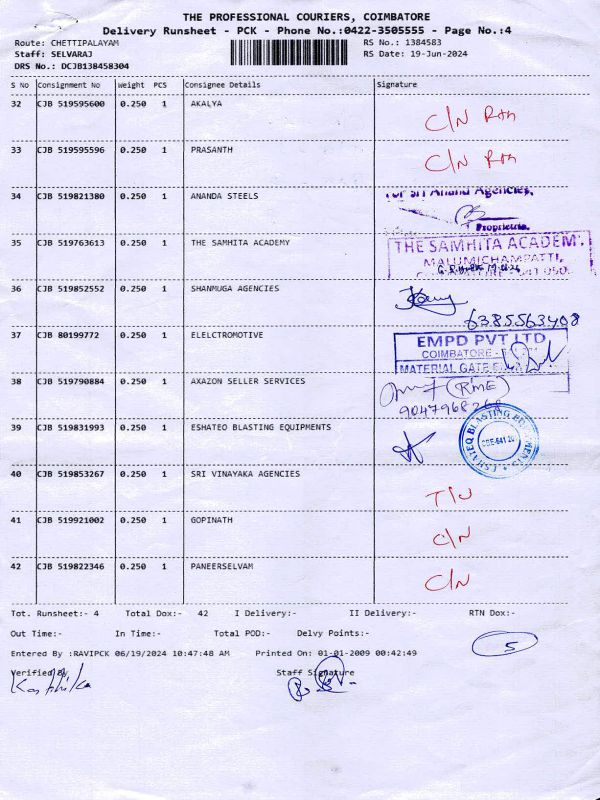 THE PROFESSIONAL COURIERS, COIMBATORE
Delivery Runsheet - PCK - Phone No.:0422-3505555 - Page No.:4
Route: CHETTIPALAYAM RS No.: 1384583
Staff: SELVARAJ RS Date: 19-Jun-2024
DRS No.: DCJB138458304
S No Consignment No Weight PCS Consignee Details Signature
32 CJB 519595600 0.250 1 AKALYA
C/N
33 CJB 519595596 0.250 1 PRASANTH
C/N
34 CJB 519821380 0.250 1 ANANDA STEELS
For Sri Anand Agencies,
Proprietrix.
35 CJB 519763613 0.250 1 THE SAMHITA ACADEMY
THE SAMHITA ACADEMY,
MALUMICHAMPATTI,
36 CJB 519852552 0.250 1 SHANMUGA AGENCIES
6385563408
37 CJB 80199772 0.250 1 ELELCTROMOTIVE
EMPD PVT LTD
COIMBATORE -
MATERIAL GATE
38 CJB 519790884 0.250 1 AXAZON SELLER SERVICES
39 CJB 519831993 0.250 1 ESHATEO BLASTING EQUIPMENTS
40 CJB 519853267 0.250 1 SRI VINAYAKA AGENCIES
41 CJB 519921002 0.250 1 GOPINATH
C/N
42 CJB 519822346 0.250 1 PANEERSELVAM
C/N
Tot. Runsheet:- 4 Total Dox:- 42 I Delivery:- II Delivery:- RTN Dox:-
Out Time:- In Time:- Total POD:- Delvy Points:-
5
Entered By :RAVIPCK 06/19/2024 10:47:48 AM Printed On: 01-01-2009 00:42:49
Verified By Staff Signature
Karthika